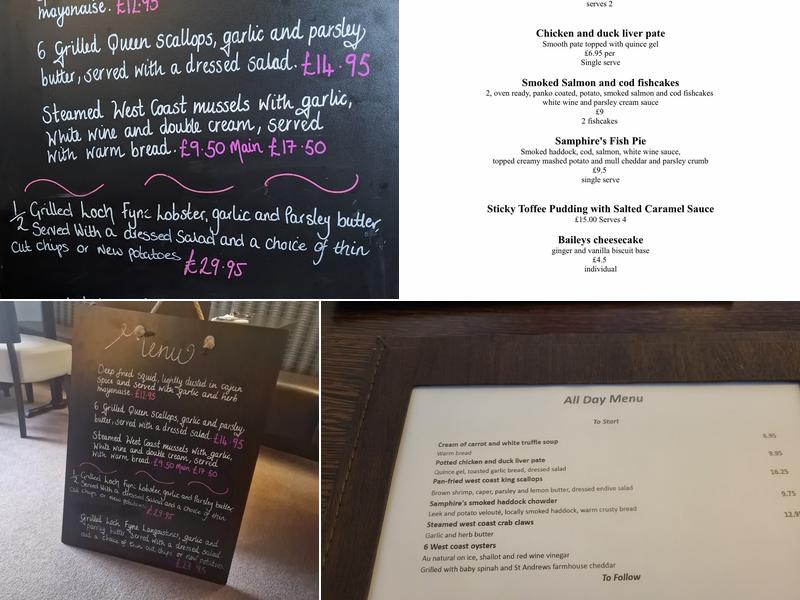 mayonaise. £12.95
6 Grilled Queen Scallops, garlic and parsley
butter, served with a dressed salad. £14.95
Steamed West Coast mussels with garlic,
White wine and double cream, served
with warm bread. £9.50 Main £17.50
1/2 Grilled Loch Fyne Lobster, garlic and Parsley butter,
Served With a dressed Salad and a choice of thin
cut chips or new potatoes
£29.95
serves 2
Chicken and duck liver pate
Smooth pate topped with quince gel
£6.95 per
Single serve
Smoked Salmon and cod fishcakes
2, oven ready, panko coated, potato, smoked salmon and cod fishcakes
white wine and parsley cream sauce
£9
2 fishcakes
Samphire's Fish Pie
Smoked haddock, cod, salmon, white wine sauce,
topped creamy mashed potato and mull cheddar and parsley crumb
£9.5
single serve
Sticky Toffee Pudding with Salted Caramel Sauce
£15.00 Serves 4
Baileys cheesecake
ginger and vanilla biscuit base
£4.5
individual
Menu
Deep fried squid, lightly dusted in cajun
spice and served with garlic and herb
mayonaise. £12.95
6 Grilled Queen Scallops, garlic and parsley,
butter, served with a dressed salad. £14.95
Steamed West Coast mussels with garlic,
White wine and double cream, served
with warm bread. £9.50 Main £17.50
1/2 Grilled Loch Fyne Lobster, garlic and Parsley butter
Served With a dressed Salad and a choice of thin
cut chips or new potatoes
£29.95
Grilled Loch Fyne Langoustines, garlic and
parsley butter. Served With a dressed Salad
and a choice of thin cut chips or new potatoes
All Day Menu
To Start
Cream of carrot and white truffle soup 6.95
Warm bread
Potted chicken and duck liver pate 9.95
Quince gel, toasted garlic bread, dressed salad
Pan-fried west coast king scallops 16.25
Brown shrimp, caper, parsley and lemon butter, dressed endive salad
Samphire's smoked haddock chowder 9.75
Leek and potato velouté, locally smoked haddock, warm crusty bread
Steamed west coast crab claws 12.95
Garlic and herb butter
6 West coast oysters
Au natural on ice, shallot and red wine vinegar
Grilled with baby spinah and St Andrews farmhouse cheddar
To Follow